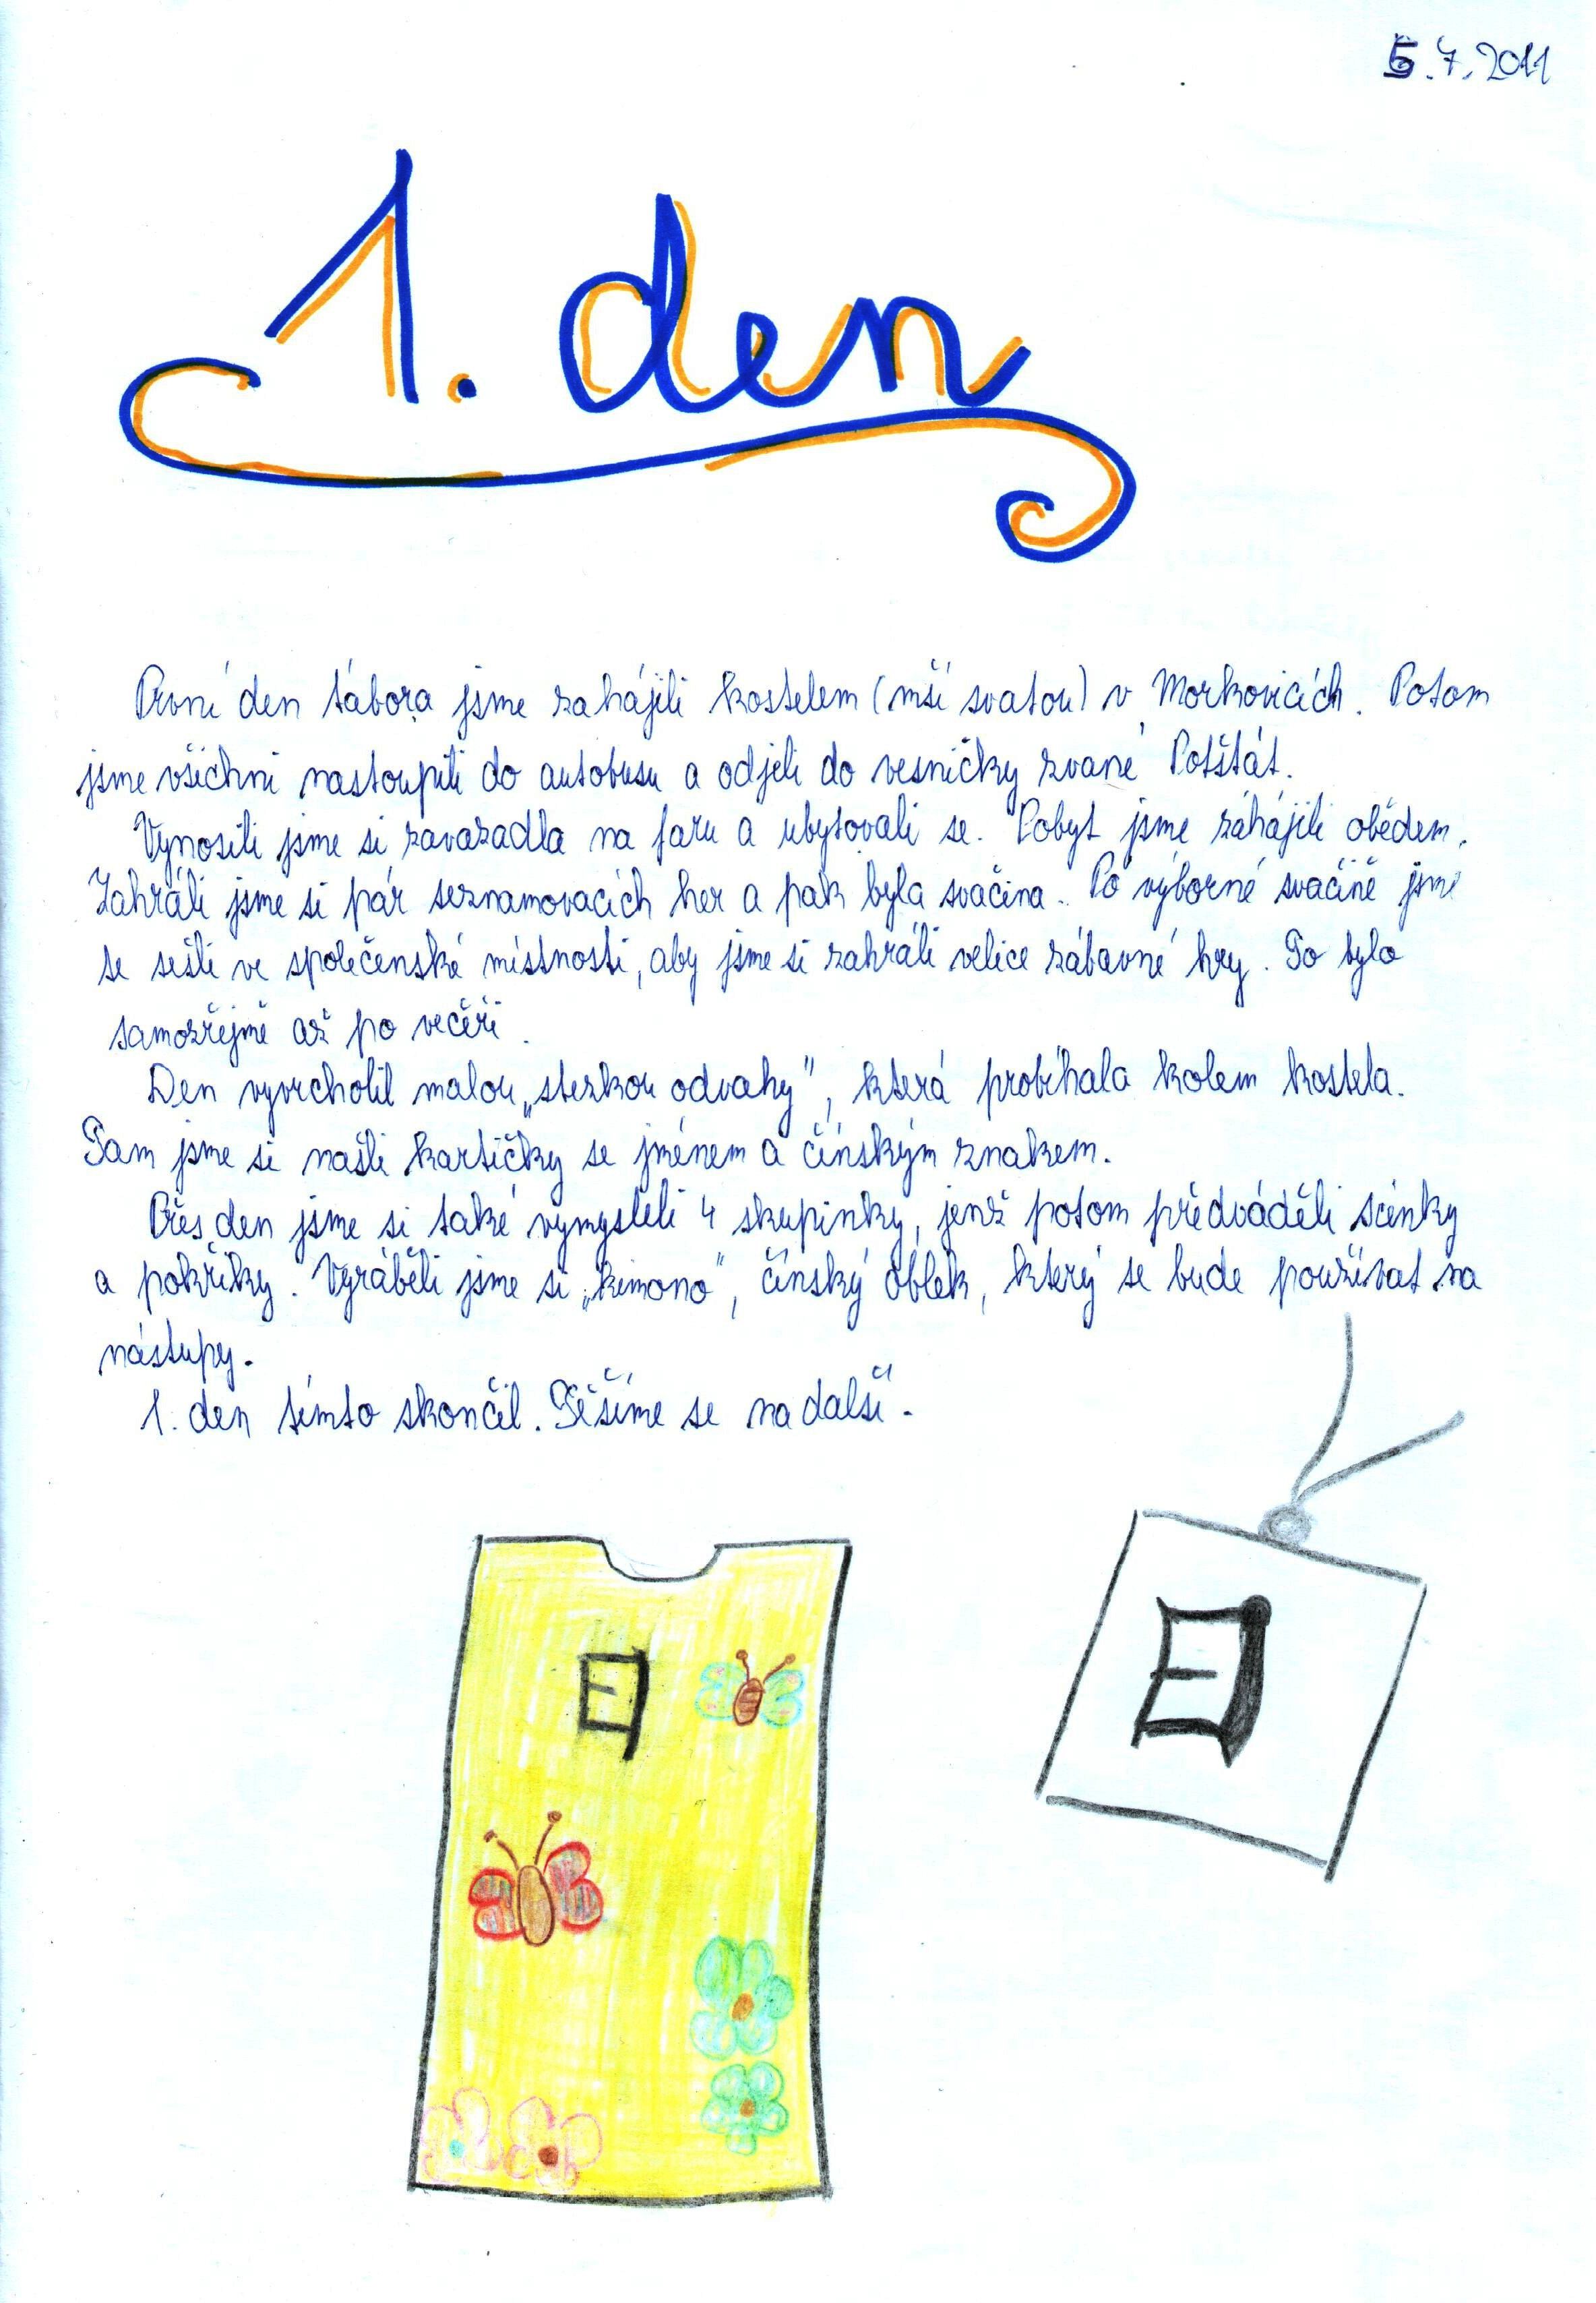 5.7.2011
1. den
První den tábora jsme zahájili kostelem (mší svatou) v Morkovicích. Potom
jsme všichni nastoupili do autobusu a odjeli do vesničky zvané Potštát.
Vynosili jsme si zavazadla na faru a ubytovali se. Pobyt jsme záhájili obědem.
Zahráli jsme si pár seznamovacích her a pak byla svačina. Po výborné svačině jsme
se sešli ve společenské místnosti, aby jsme si zahráli velice zábavné hry. To bylo
samozřejmě až po večeři.
Den vyvrcholil malou „stezkou odvahy", která probíhala kolem kostela.
Tam jsme si našli kartičky se jménem a čínským znakem.
Přes den jsme si také vymysleli 4 skupinky, jenž potom předváděli scénky
a pokřiky. Vyráběli jsme si „kimono", čínský oblek, který se bude používat na
nástupy.
1. den tímto skončil. Těšíme se na další.
日
日